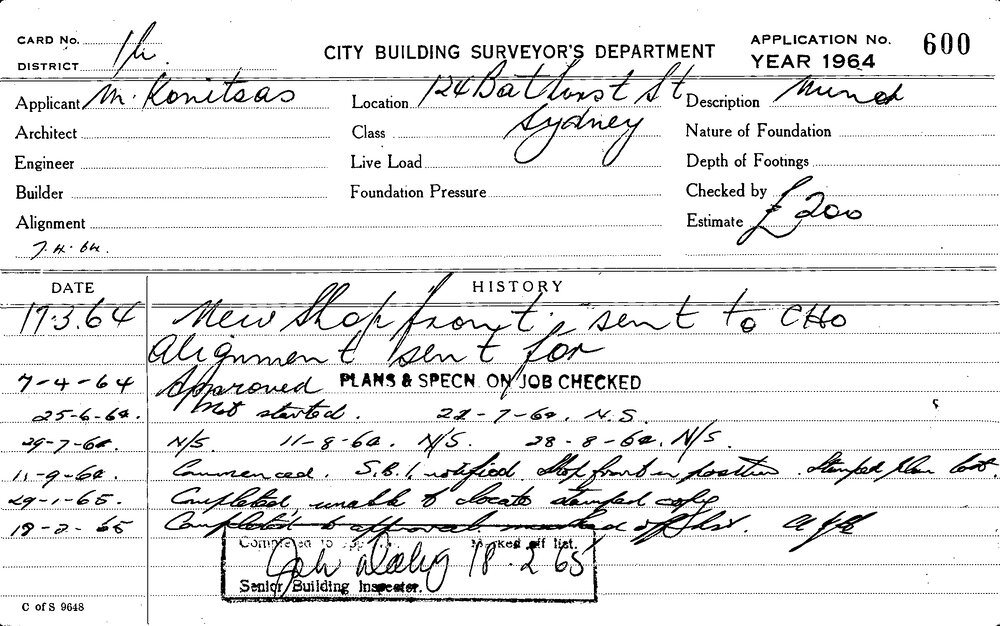 CARD No.
DISTRICT 1h.
CITY BUILDING SURVEYOR'S DEPARTMENT
APPLICATION No. 600
YEAR 1964
Applicant M. Konitsas
Location 124 Bathurst St
Sydney
Description
Architect
Class
Nature of Foundation
Engineer
Live Load
Depth of Footings
Builder
Foundation Pressure
Checked by
Alignment
Estimate £200
7.4.64.
DATE HISTORY
17.3.64 New Shop front, sent to CHO
alignment sent for
7-4-64 Approved PLANS & SPECN. ON JOB CHECKED
25-6-64. Not started. 22-7-64. N.S.
29-7-64. N/S. 11-8-64. N/S. 28-8-64. N/S.
11-9-64. Commenced. S.B.I. notified Shop front in position. Stamped plan lost.
29-1-65. Completed, unable to locate stamped copy
18-2-65 Completed to approval marked off list.
Completed to Marked off list.
18.2.65
Senior Building Inspector.
C of S 9648